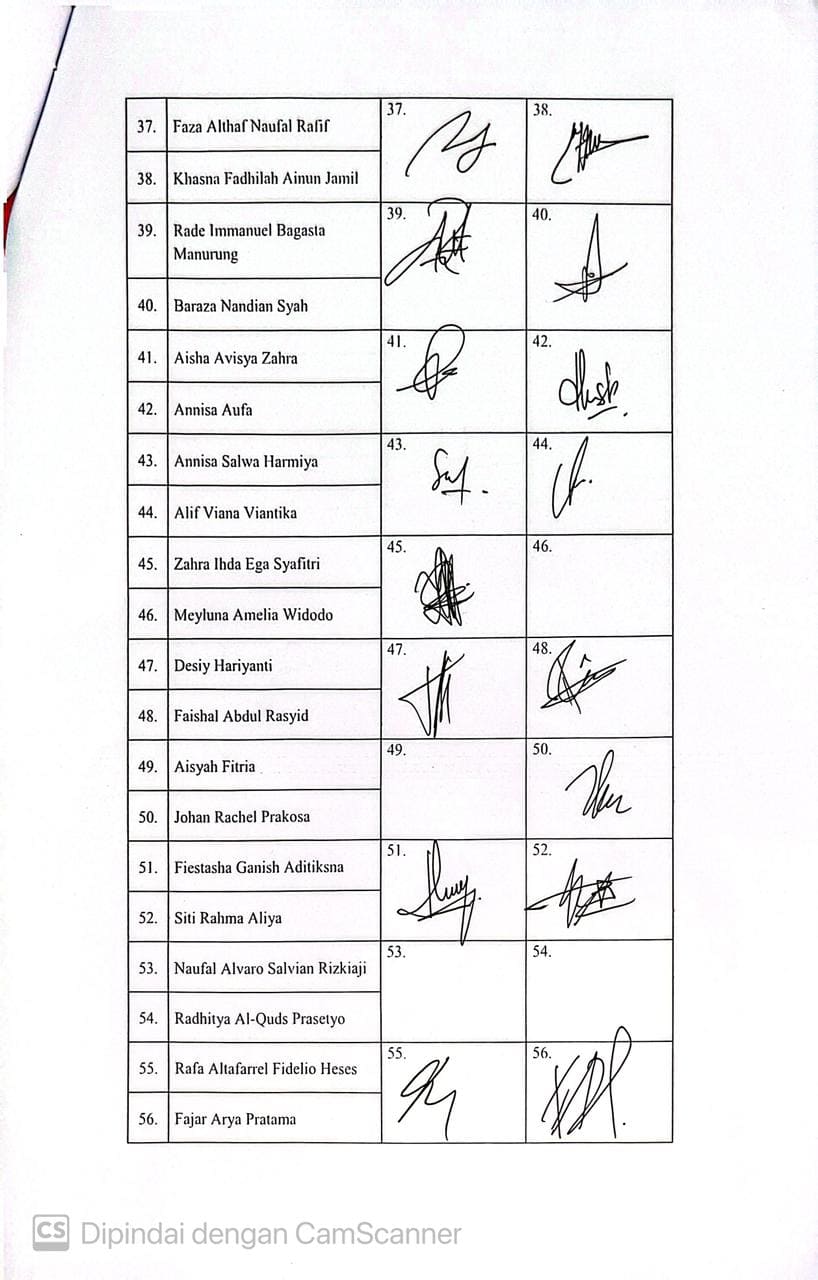 37. Faza Althaf Naufal Rafif 37. 38.
38. Khasna Fadhilah Ainun Jamil
39. Rade Immanuel Bagasta 39. 40.
Manurung
40. Baraza Nandian Syah
41. Aisha Avisya Zahra 41. 42.
42. Annisa Aufa
43. Annisa Salwa Harmiya 43. 44.
44. Alif Viana Viantika
45. Zahra Ihda Ega Syafitri 45. 46.
46. Meyluna Amelia Widodo
47. Desiy Hariyanti 47. 48.
48. Faishal Abdul Rasyid
49. Aisyah Fitria 49. 50.
50. Johan Rachel Prakosa
51. Fiestasha Ganish Aditiksna 51. 52.
52. Siti Rahma Aliya
53. Naufal Alvaro Salvian Rizkiaji 53. 54.
54. Radhitya Al-Quds Prasetyo
55. Rafa Altafarrel Fidelio Heses 55. 56.
56. Fajar Arya Pratama
CS Dipindai dengan CamScanner